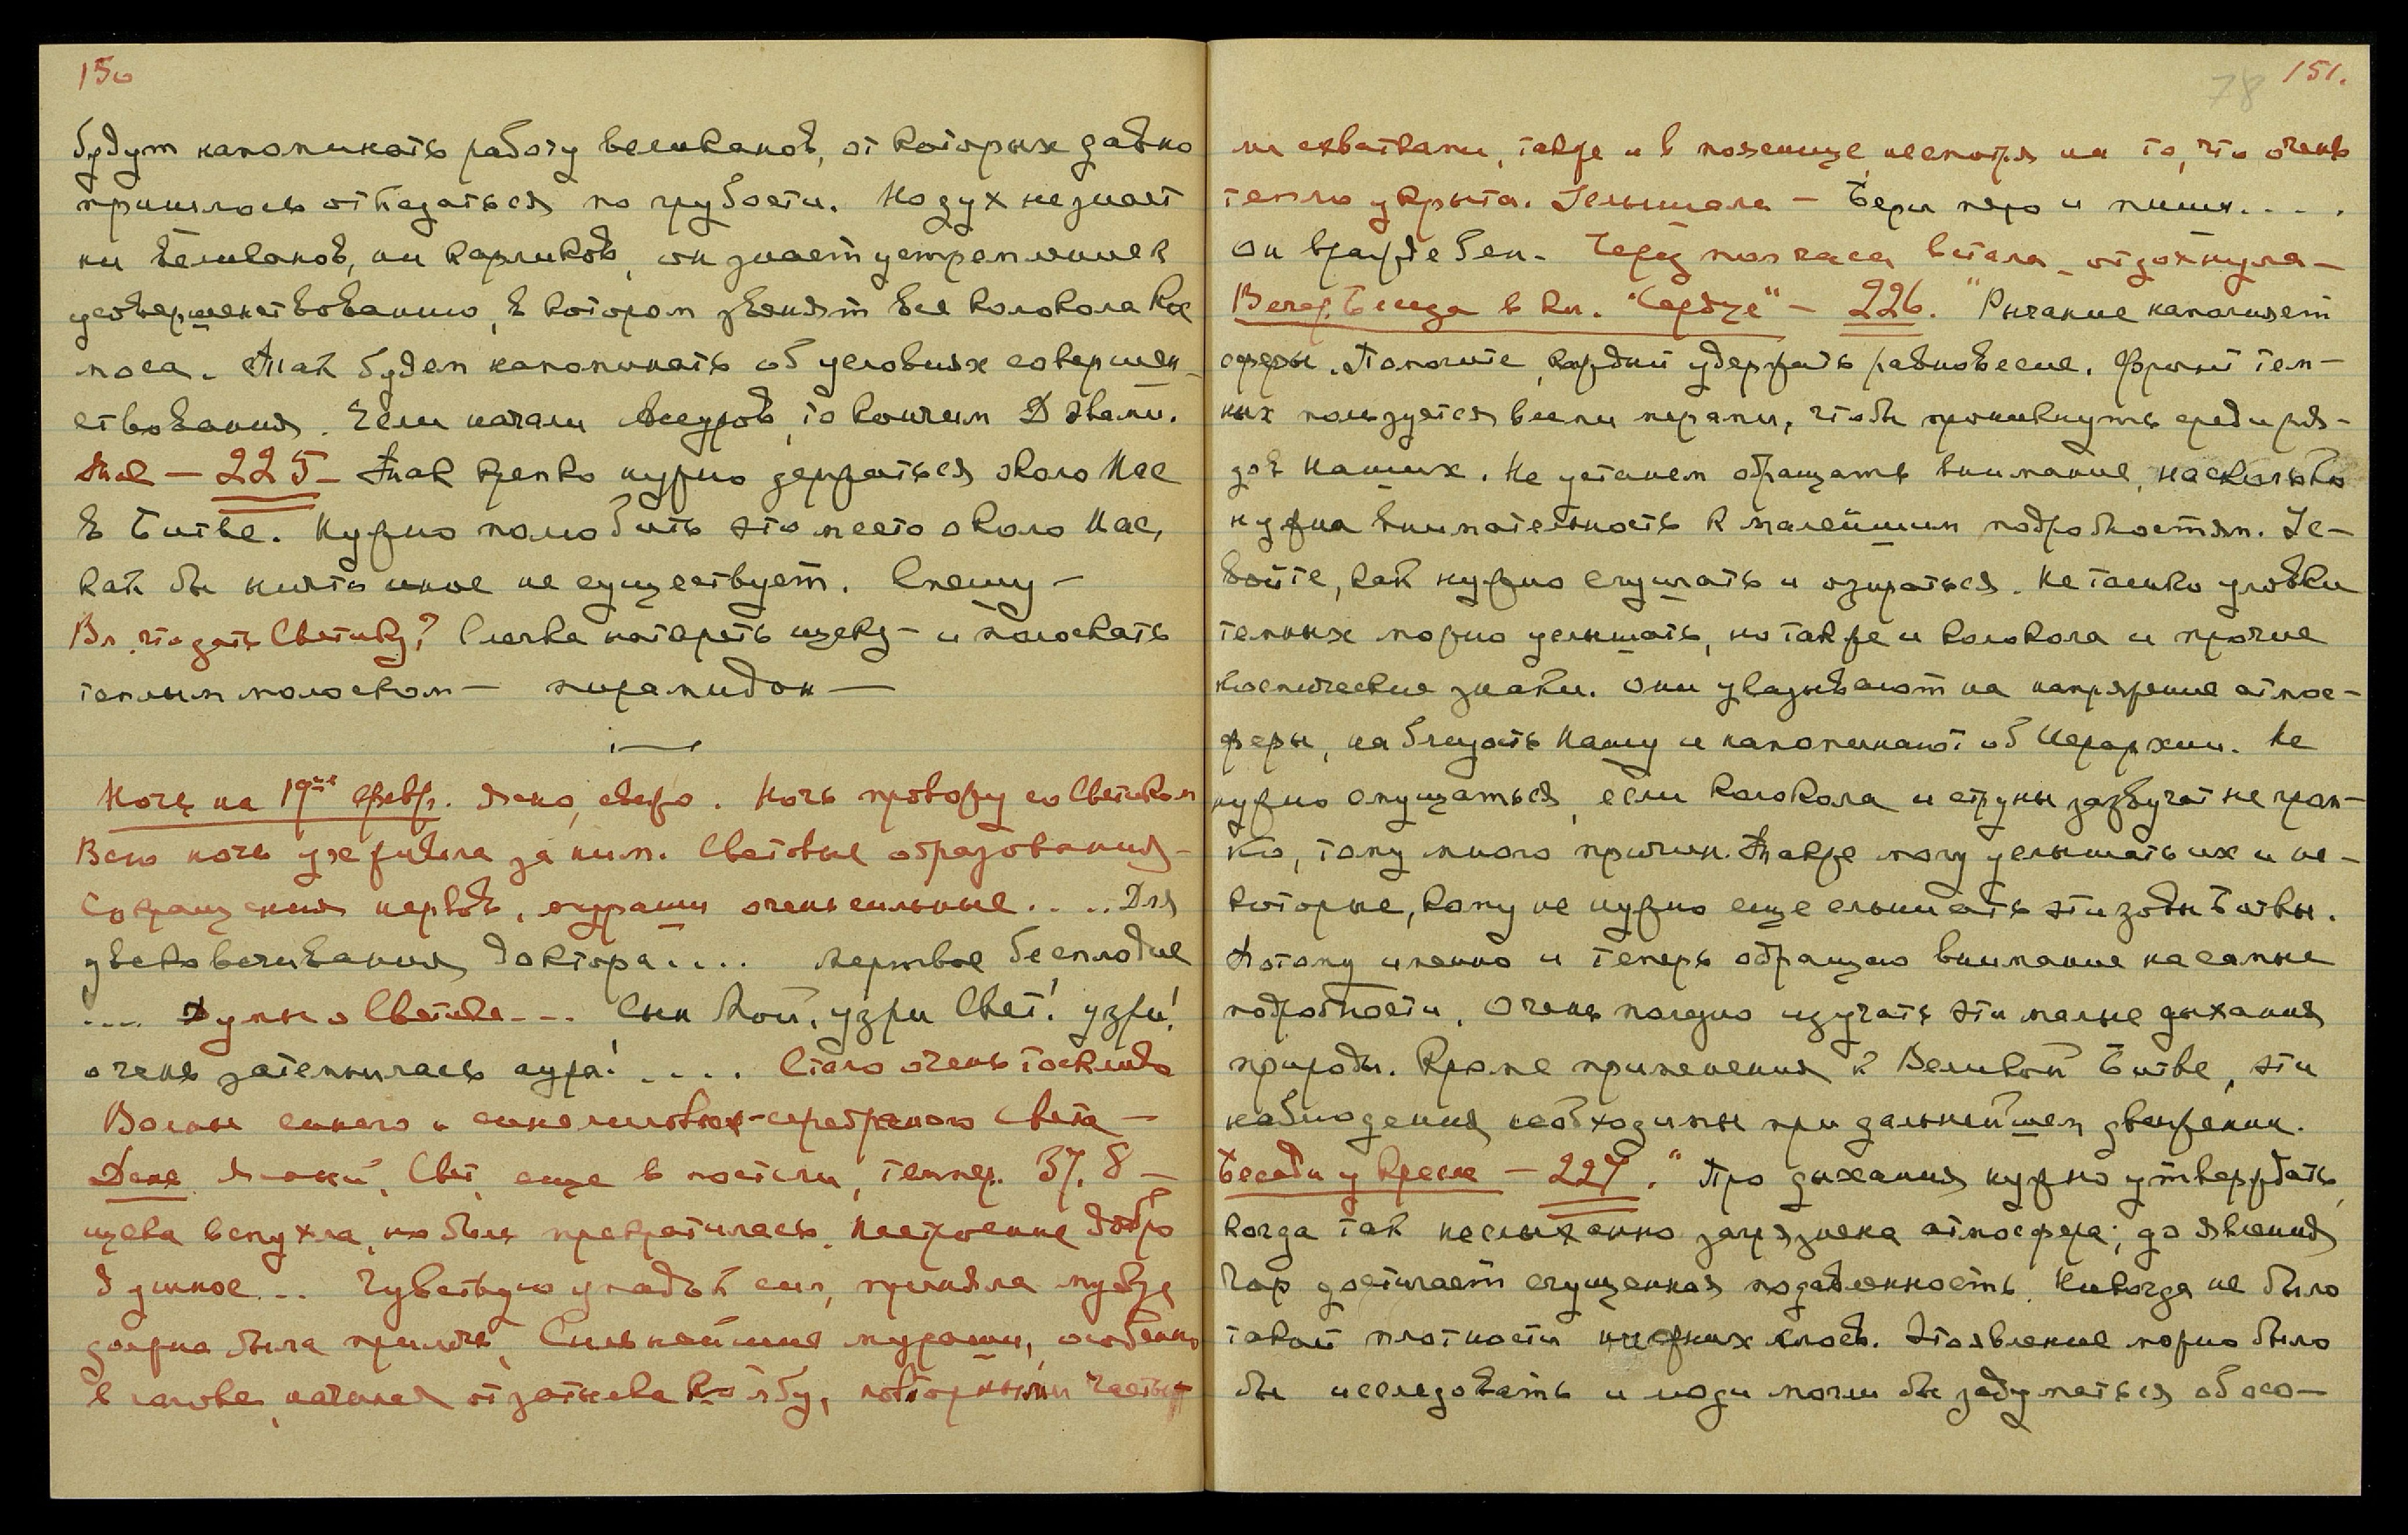 150
будут напоминать работу великанов, от которых давно
пришлось отказаться по грубости. Но дух не знает
ни великанов, ни карликов, он знает устремление к
усовершенствованию, в котором звенят все колокола Кос
моса. Так будем напоминать об условиях совершен-
ствования. Если начали Асуров, то кончим Дэвами.
— 225 — Так крепко нужно держаться около Нас
в Битве. Нужно полюбить это место около Нас,
как бы ничто иное не существует. Спешу —
Вл. что дать Светику? Слегка натереть щеку — и полоскать
теплым молоком — пирамидон —
Ночь на 19ое февр. Ясно, свежо. Ночь провожу со Светиком
Всю ночь ухаживала за ним. Световые образования —
Сокращения нервов, мураши очень сильные.... Для
увековечивания доктора.... мертвое бесплодие
.... Думы о Светике... Сын Мой, узри Свет! узри!
очень затемнилась аура!.... Стало очень тоскливо
Волны синего и синелилового-серебряного света —
День. Ясный, Свет. еще в постели, темпер. 37,8 —
щека вспухла, но боль прекратилась. Настроение добро
душное... Чувствую упадок сил, приняла мускус
должна была прилечь. Сильнейшие мураши, особенно
в голове, начиная от затылка ко лбу, повторными часты
78 151.
ми схватками, также и в пояснице, несмотря на то, что очень
тепло укрыта. Услышала — Бери перо и пиши....
Он враждебен. Через полчаса встала, отдохнула —
Вечер. Беседа в кн. "Сердце" — 226. "Рычание наполняет
сферы. Помогите каждый удержать равновесие. Фронт тем-
ных пользуется всеми мерами, чтобы проникнуть среди ря-
дов Наших. Не устанем обращать внимание, насколько
нужна внимательность к малейшим подробностям. Ус-
войте, как нужно слушать и озираться. Не только уловки
темных можно услышать, но также и колокола и прочие
космические знаки. Они указывают на напряжение атмос-
феры, на близость Нашу и напоминают об Иерархии. Не
нужно смущаться, если колокола и струны зазвучат не гром-
ко, тому много причин. Также могут услышать их и не-
которые, кому не нужно еще слышать эти зовы Битвы.
Потому именно и теперь обращаю внимание на самые
подробности. Очень полезно изучать эти малые дыхания
природы. Кроме применения к Великой Битве, эти
наблюдения необходимы при дальнейшем движении.
Беседы у кресла — 227. "Про дыхания нужно утверждать,
когда так неслыханно загрязнена атмосфера; до явления
чар достигает сгущенная подавленность. Никогда не было
такой плотности нижних слоев. Это явление можно было
бы исследовать и люди могли бы задуматься об осо-